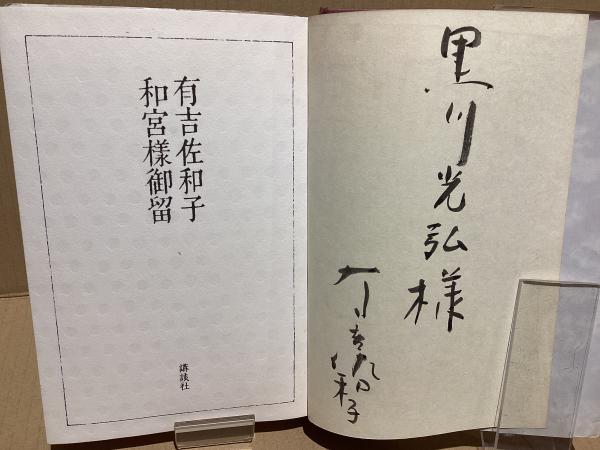 黒川光弘様
有吉佐和子
有吉佐和子
和宮様御留
講談社